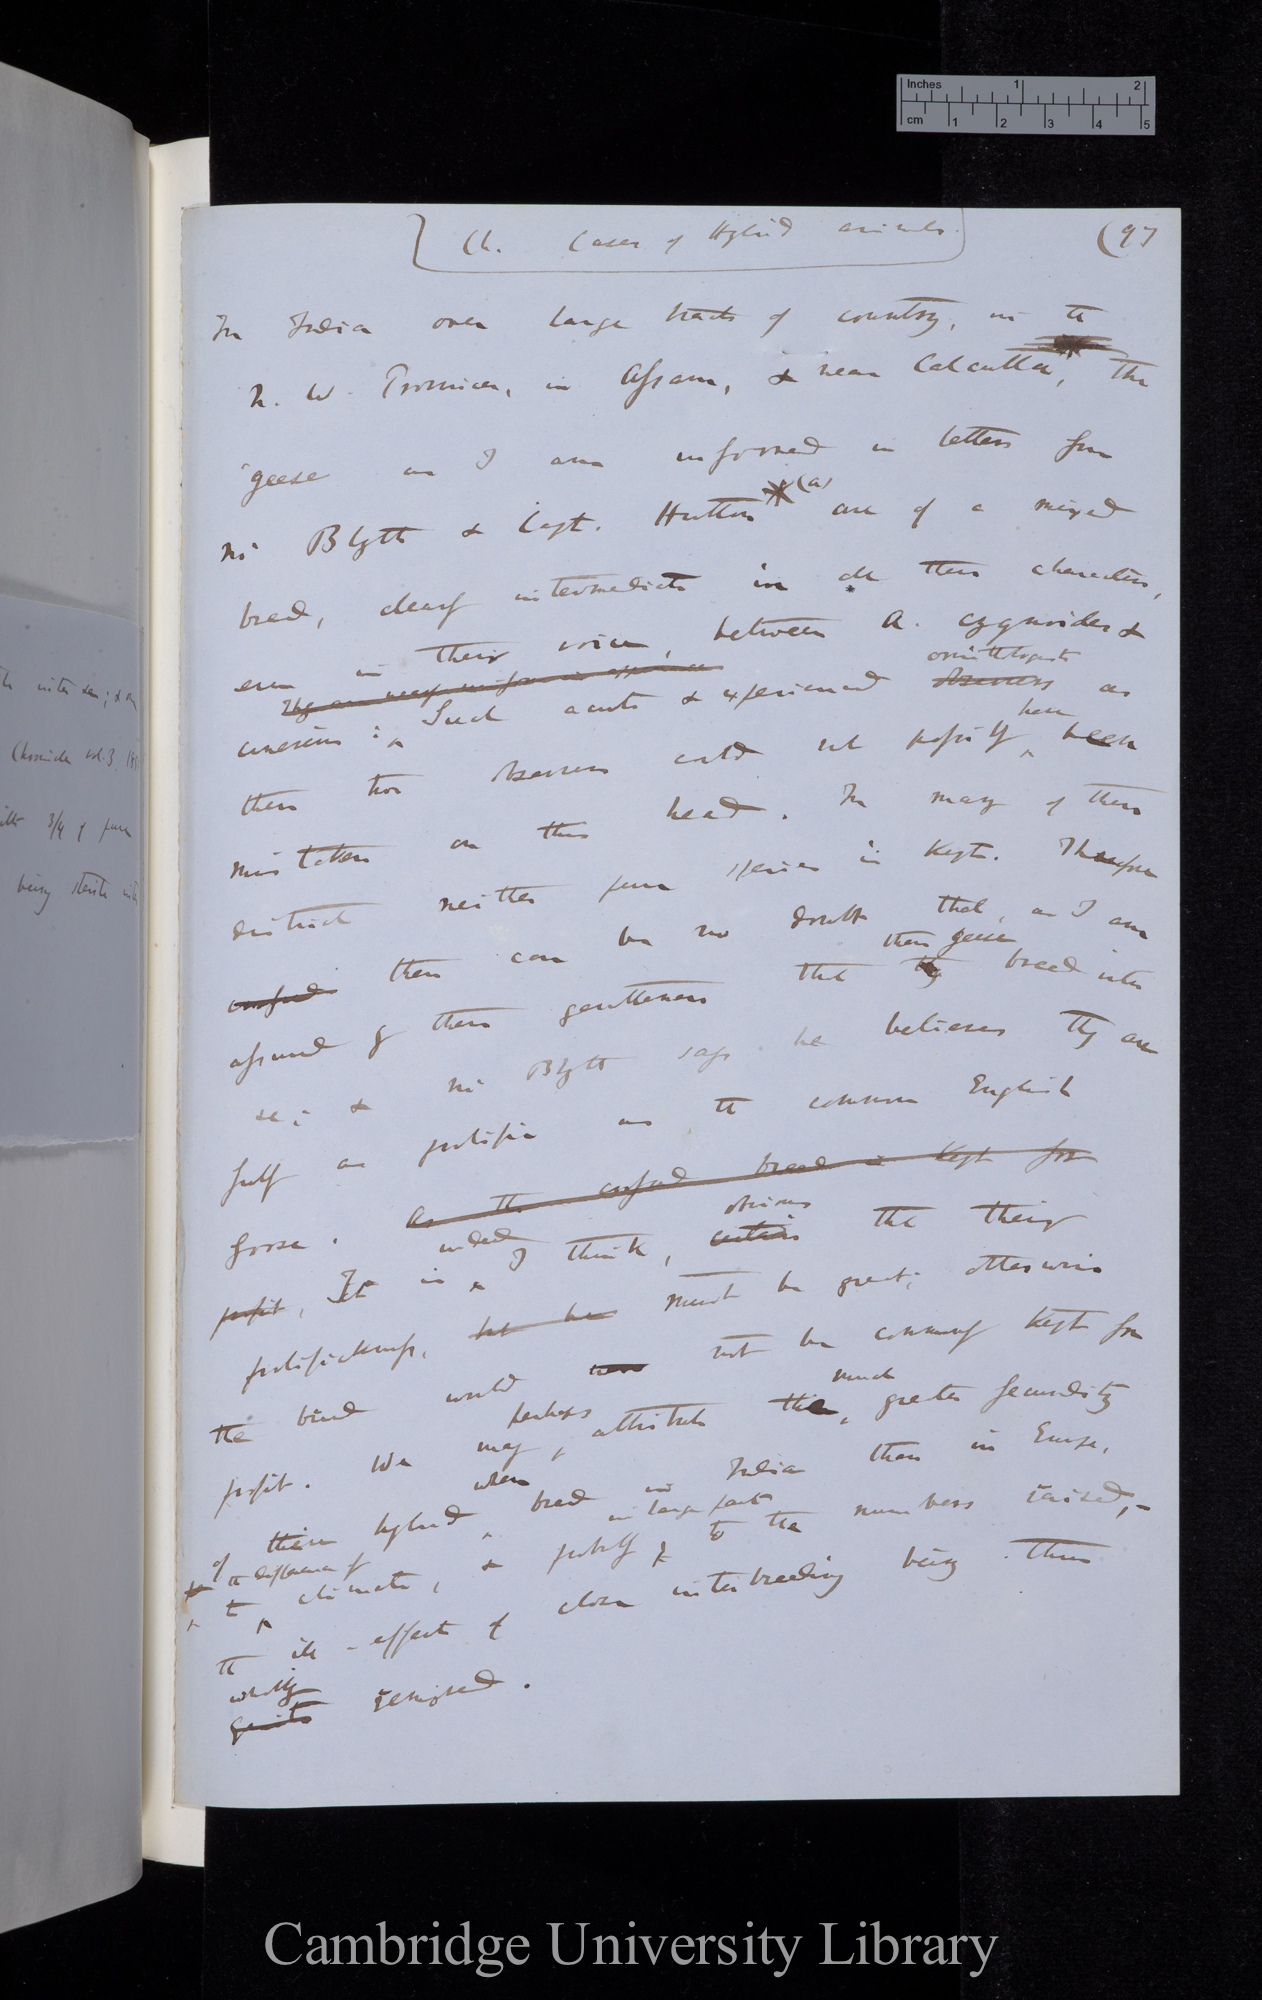 Inches 1 2
cm 1 2 3 4 5
Ch. Cases of Hybrid animals.
(97
In India over large tracts of country, in the
N. W. Provinces, in Assam, & near Calcutta, the
geese as I am informed in letters from
Mr Blyth & Capt. Hutton (a) are of a mixed
breed, clearly intermediate in all their characters,
even in their voice, between A. cygnoides &
They are nearly uniform in appearance
ornithologists
cinereus: Such acute & experienced observers as
have
these two observers could not possibly been
mistaken on this head. In many of these
districts neither pure species is kept. Therefore
there can be no doubt that, as I am
these geese
assured by these gentlemen that they breed inter
se; & Mr Blyth says he believes they are
fully as prolific as the common English
goose. As the crossed breed is kept for
indeed obvious
profit, It is I think, certain that their
prolifickness, must be great; otherwise
the bird would not be commonly kept for
much
profit. We may perhaps attribute the greater fecundity
when
of these hybrid, bred in India than in Europe,
in large part
the difference of
to climate, & probably to the numbers raised,—
the ill-effects of close interbreeding being thus
wholly
quite removed.
th inter se; &
Chronicle vol. 3.
3/4 of pure
being sterile inter
Cambridge University Library